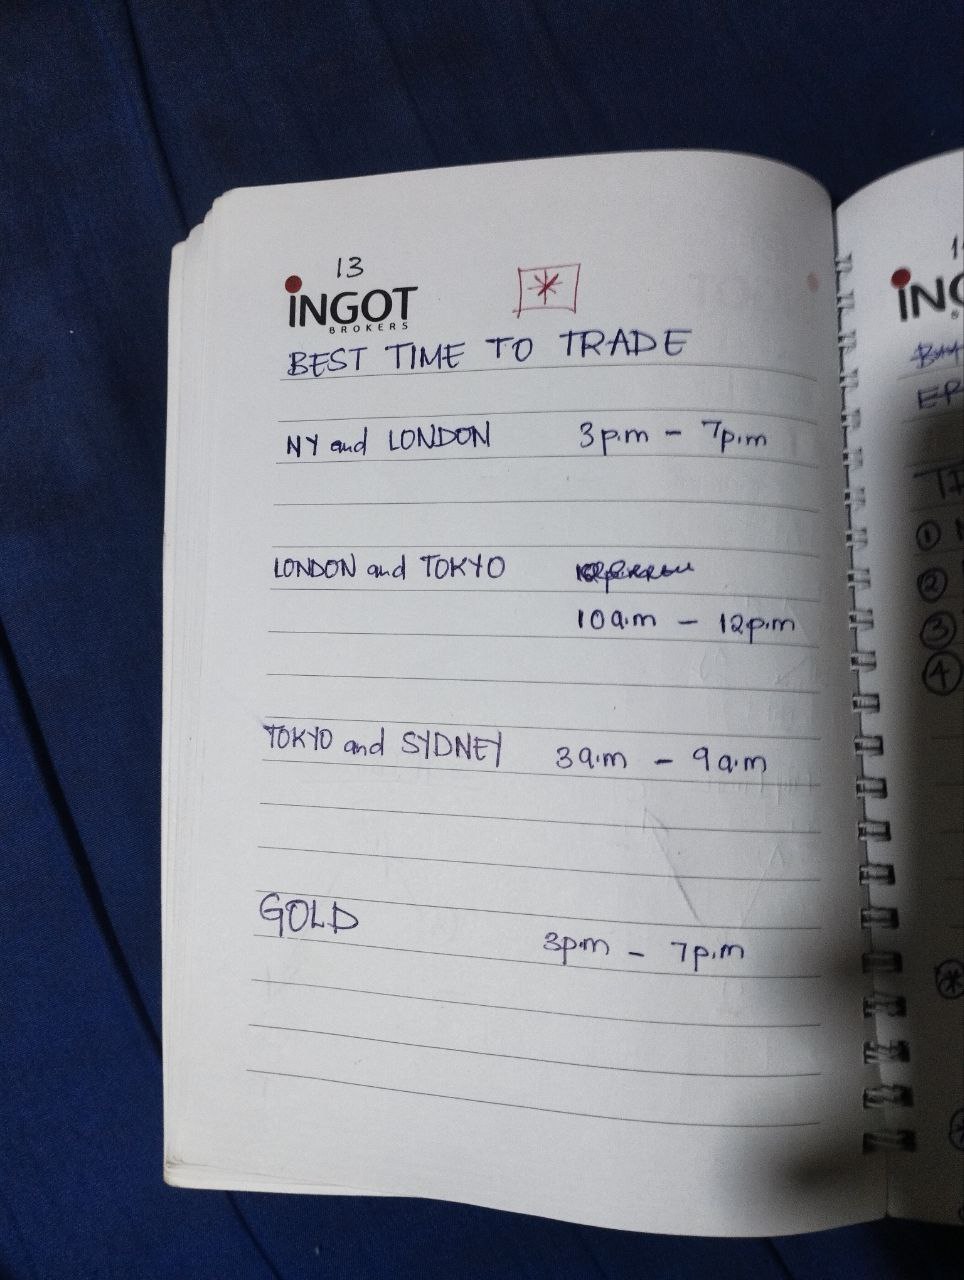 13
INGOT
BROKERS
BEST TIME TO TRADE
NY and LONDON 3p.m - 7p.m
LONDON and TOKYO
10a.m - 12p.m
TOKYO and SYDNEY 3a.m - 9a.m
GOLD
3p.m - 7p.m
ING
①
②
③
④